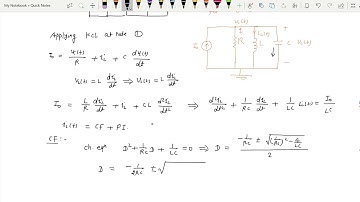 My Notebook > Quick Notes
Applying KCL at node ①
I₀ = v₁(t)/R + i_L + C dv₁(t)/dt
v₁(t) = L di_L/dt ⇒ v₁(t) = L di_L/dt
I₀ = L/R di_L/dt + i_L + CL d²i_L/dt² ⇒ d²i_L/dt² + 1/RC di_L/dt + 1/LC i_L(t) = I₀/LC
i_L(t) = CF + PI.
CF :-
ch. eqn D² + 1/RC D + 1/LC = 0 ⇒ D = (-1/RC ± √((1/RC)² - 4/LC))/2
D = -1/2RC ± √
v₁(t)
1
I₀
R
i_L(t)
L
C
+
v₁(t)
-